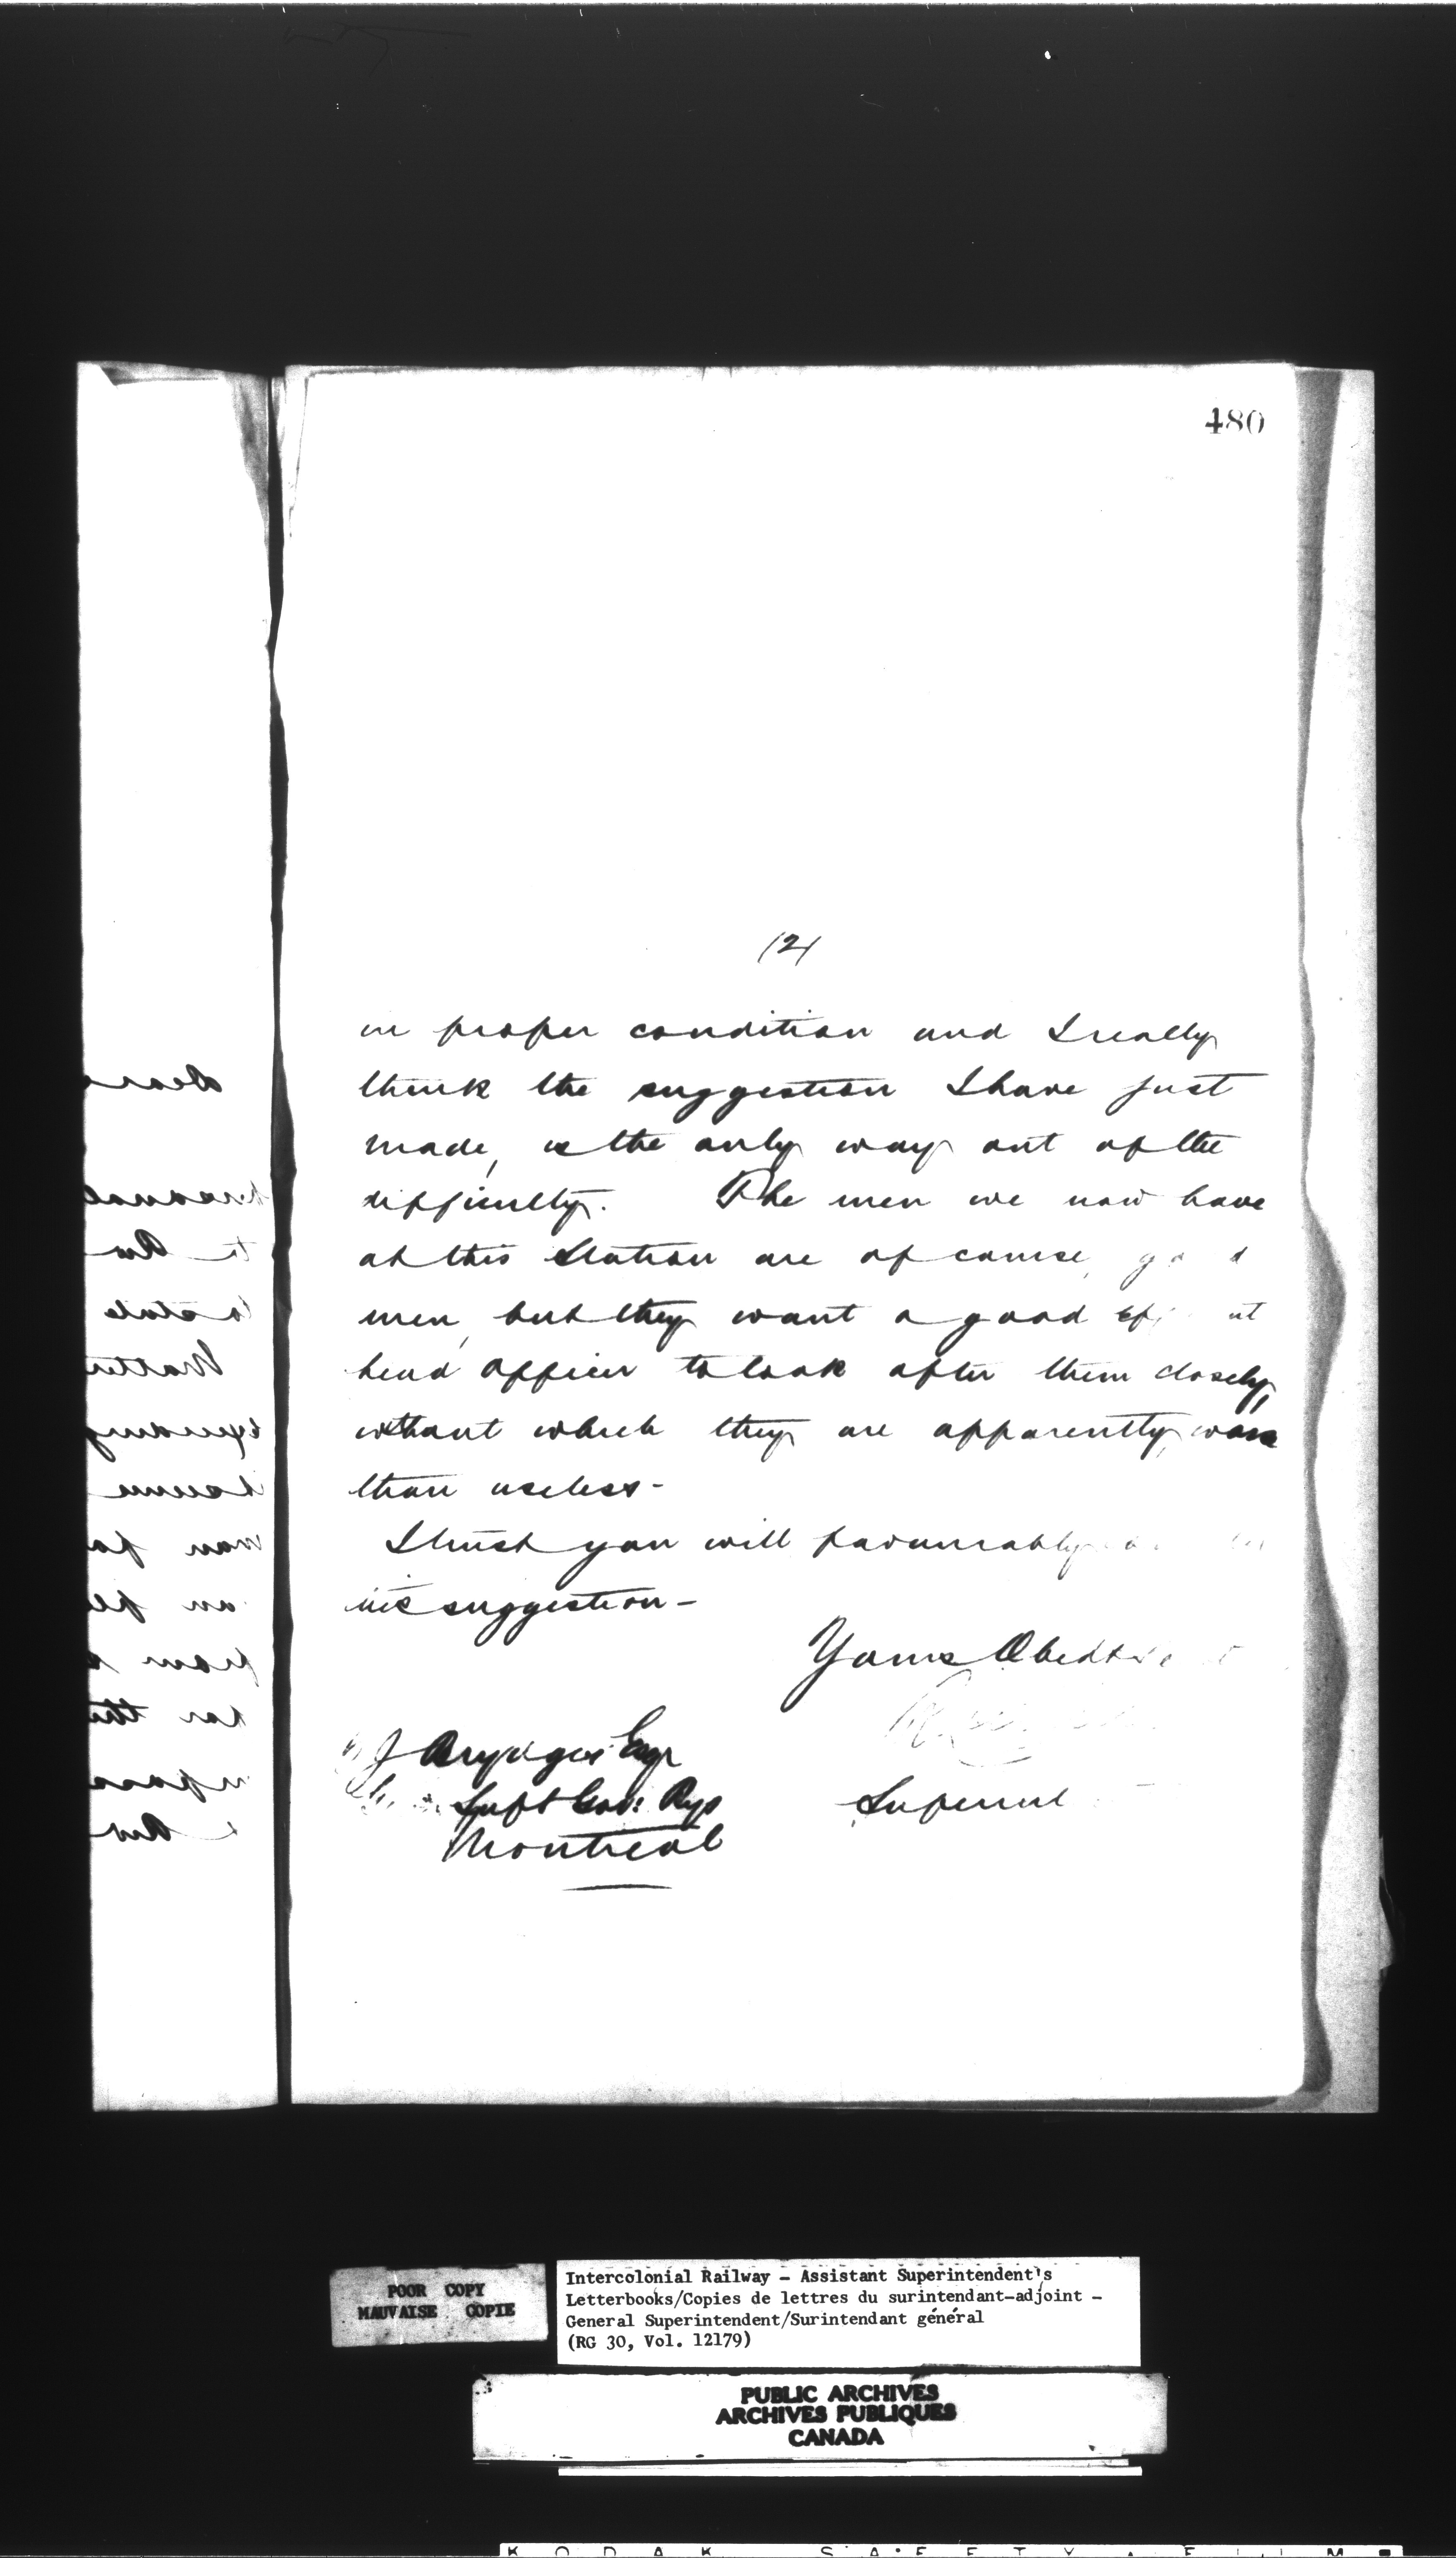 480
(2)
in proper condition and I really
think the suggestion I have just
made, is the only way out of the
difficulty. The men we now have
at this Station are of course, go d
men, but they want a good
head officer to look after them closely,
without which they are apparently, worse
than useless-
I trust you will favourably
suggestion-
Yours Obedt
J Brydges Esqr
Supt Govt Rys
Montreal
POOR COPY
MAUVAISE COPIE
Intercolonial Railway - Assistant Superintendent's
Letterbooks/Copies de lettres du surintendant-adjoint -
General Superintendent/Surintendant général
(RG 30, Vol. 12179)
PUBLIC ARCHIVES
ARCHIVES PUBLIQUES
CANADA
KODAK SAFETY FILM